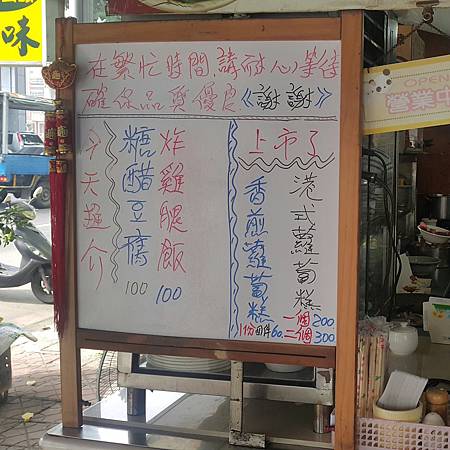 味
OPEN
營業中
在繁忙時間請耐心等待
確保品質優良《謝謝》
今天推介
糖醋豆腐
100
炸雞腿飯
100
上市了
港式蘿蔔糕
一個200
二個300
香煎蘿蔔糕
一份四件60.